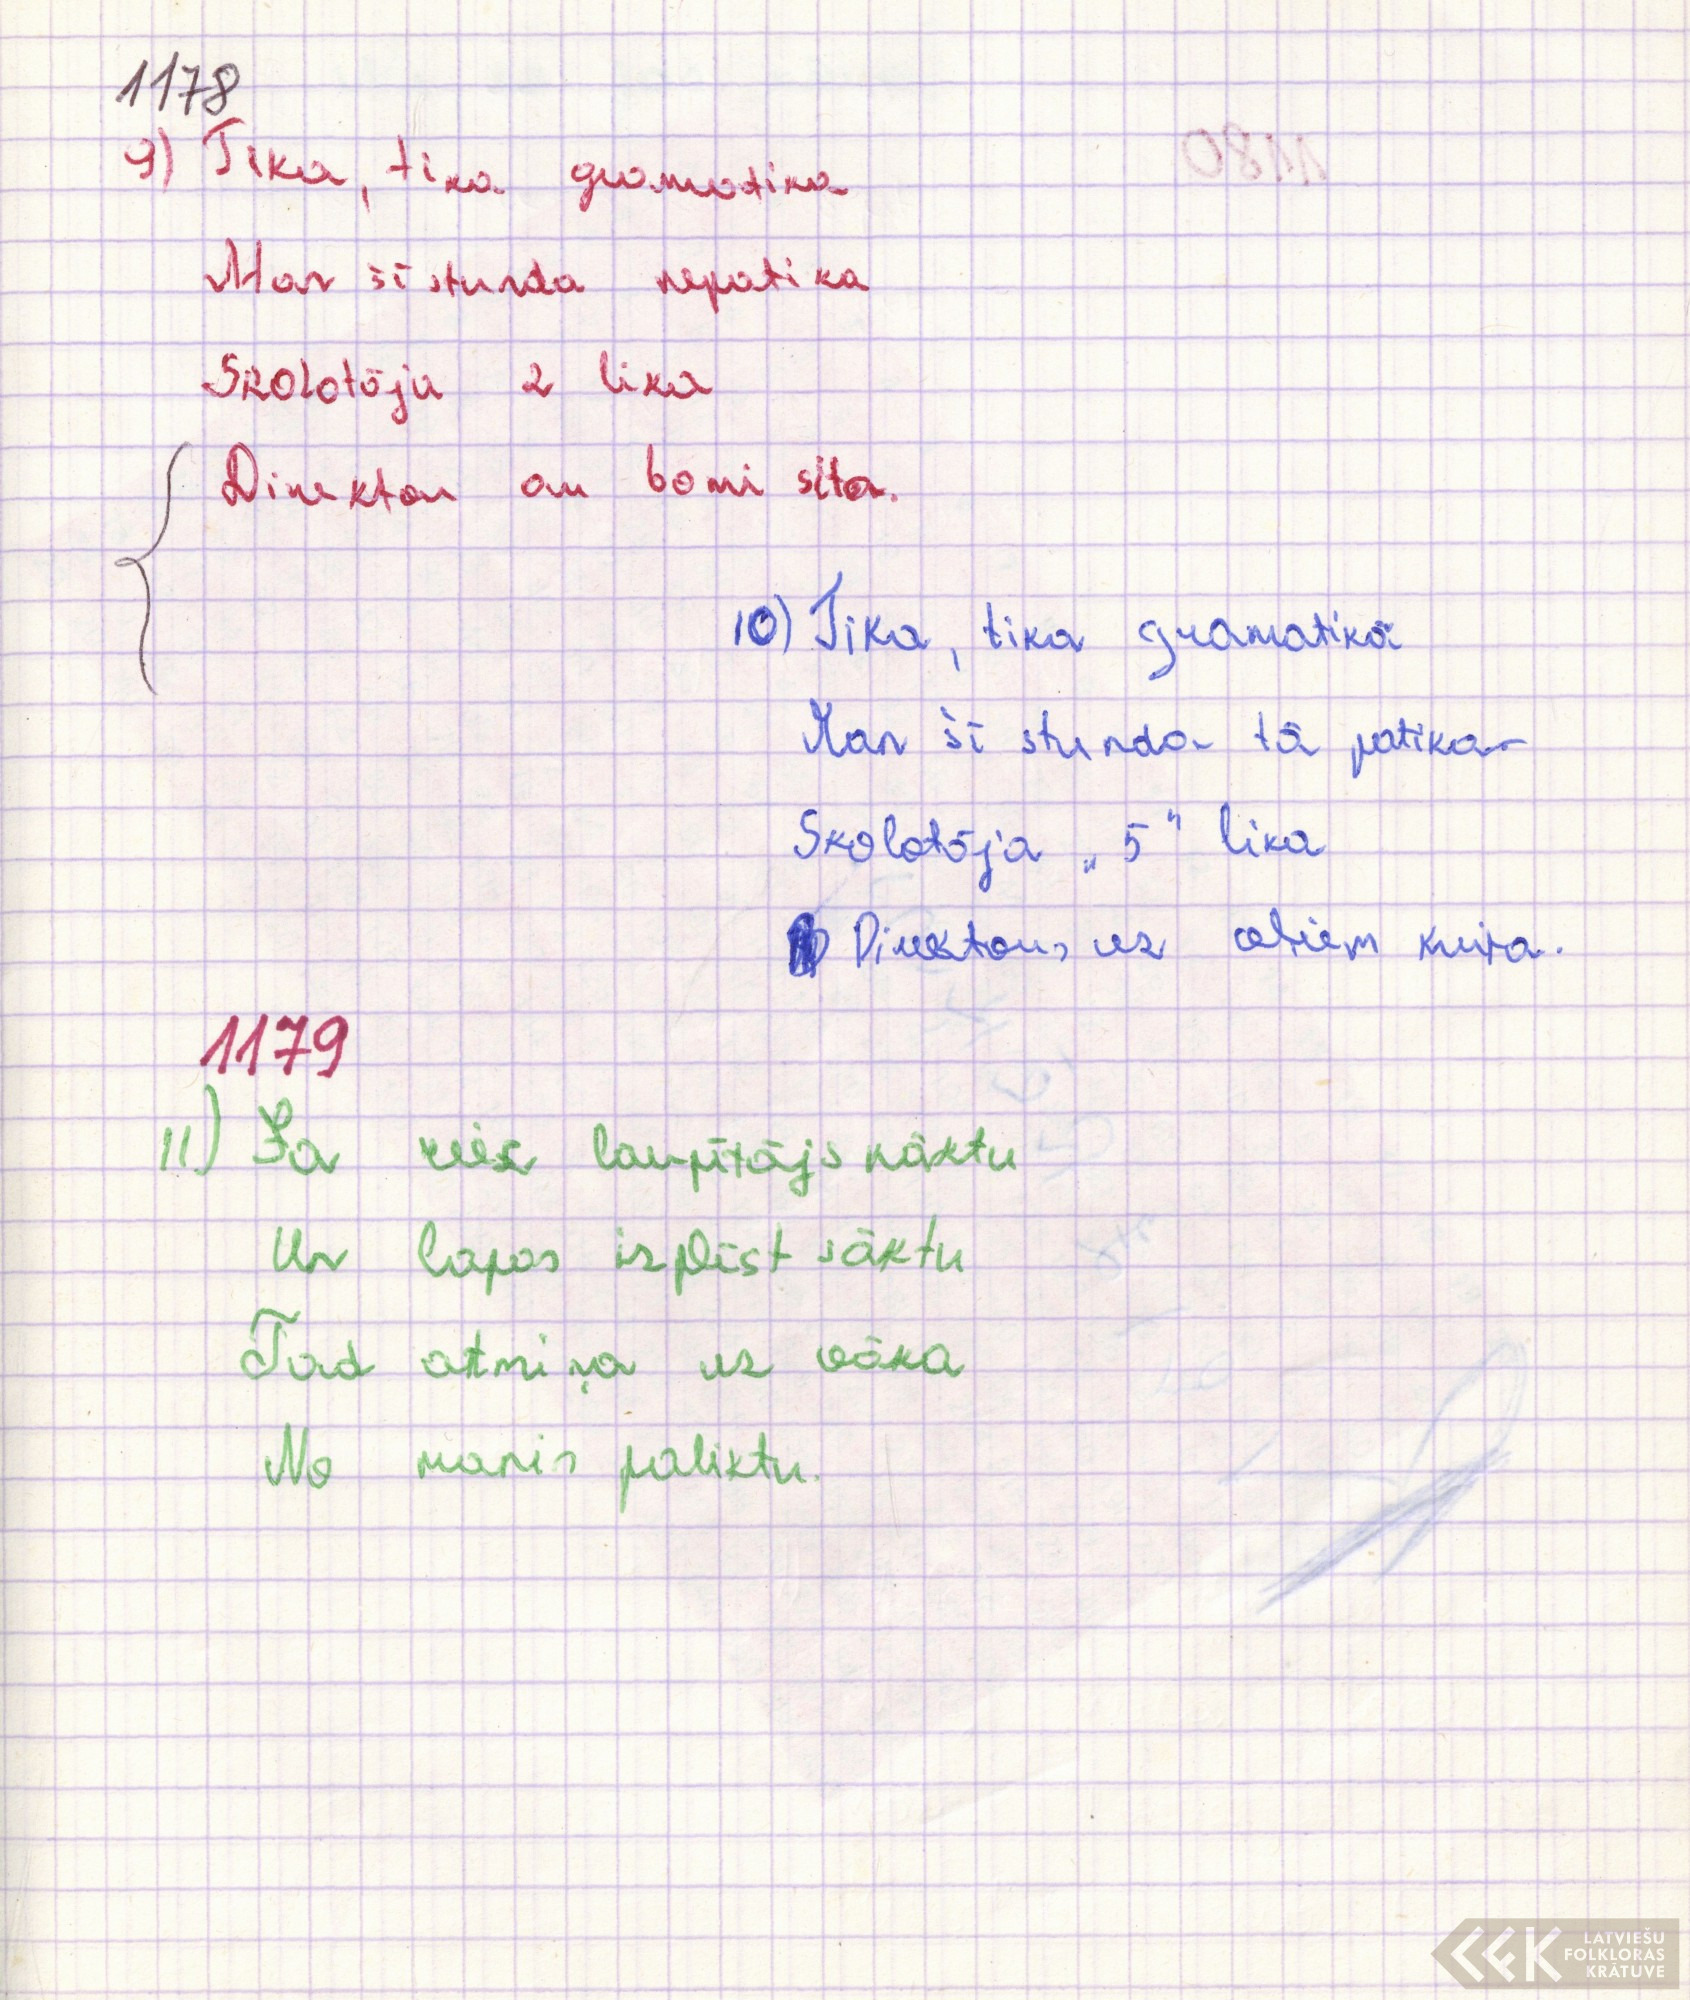 1178
9) Tika, tika gramatika
Man šī stunda nepatika
Skolotāju 2 lika
Direktor ar bomi sita.
10) Tika, tika gramatikā
Man šī stunda tā patika
Skolotāja „5" lika
Direktors uz celiem krita.
1179
11) Ja reiz laupītājs nāktu
Un lapas izplēst sāktu
Tad atmiņa uz vāka
No manis paliktu.
LATVIEŠU
FOLKLORAS
KRĀTUVE